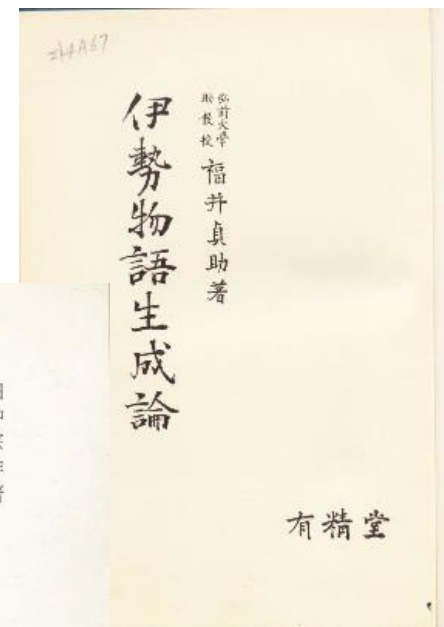 弘前大学
助教授
福井貞助著
伊勢物語生成論
有精堂